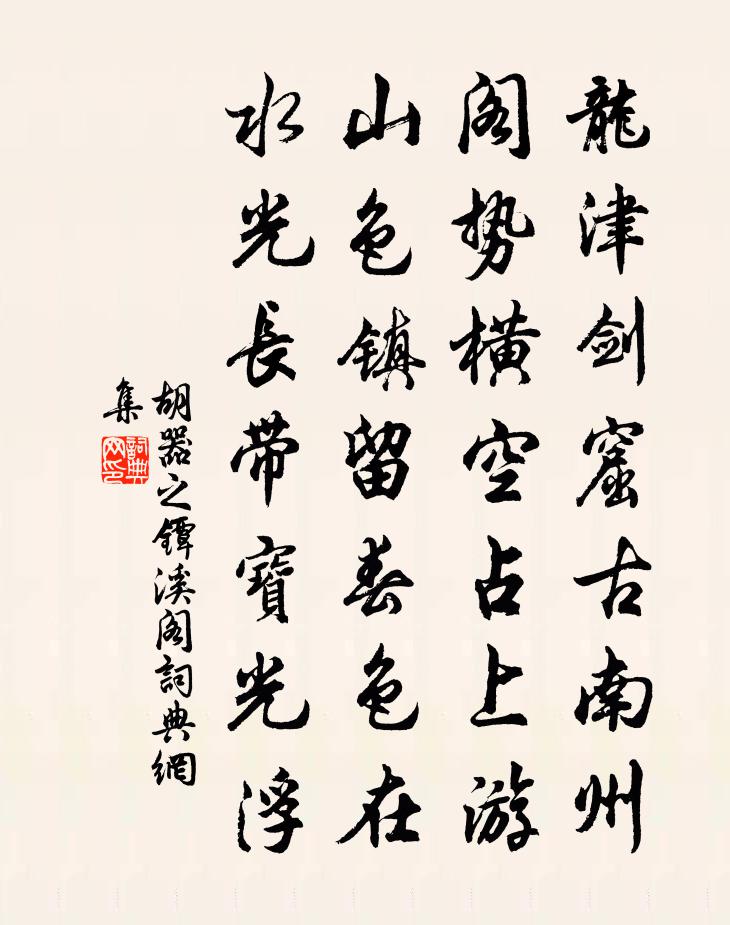 龍津劍窟古南州
閣勢橫空占上游
山色鎮留春色在
水光長帶寶光浮
胡器之鐔溪閣詞典網
集
詞典
网印